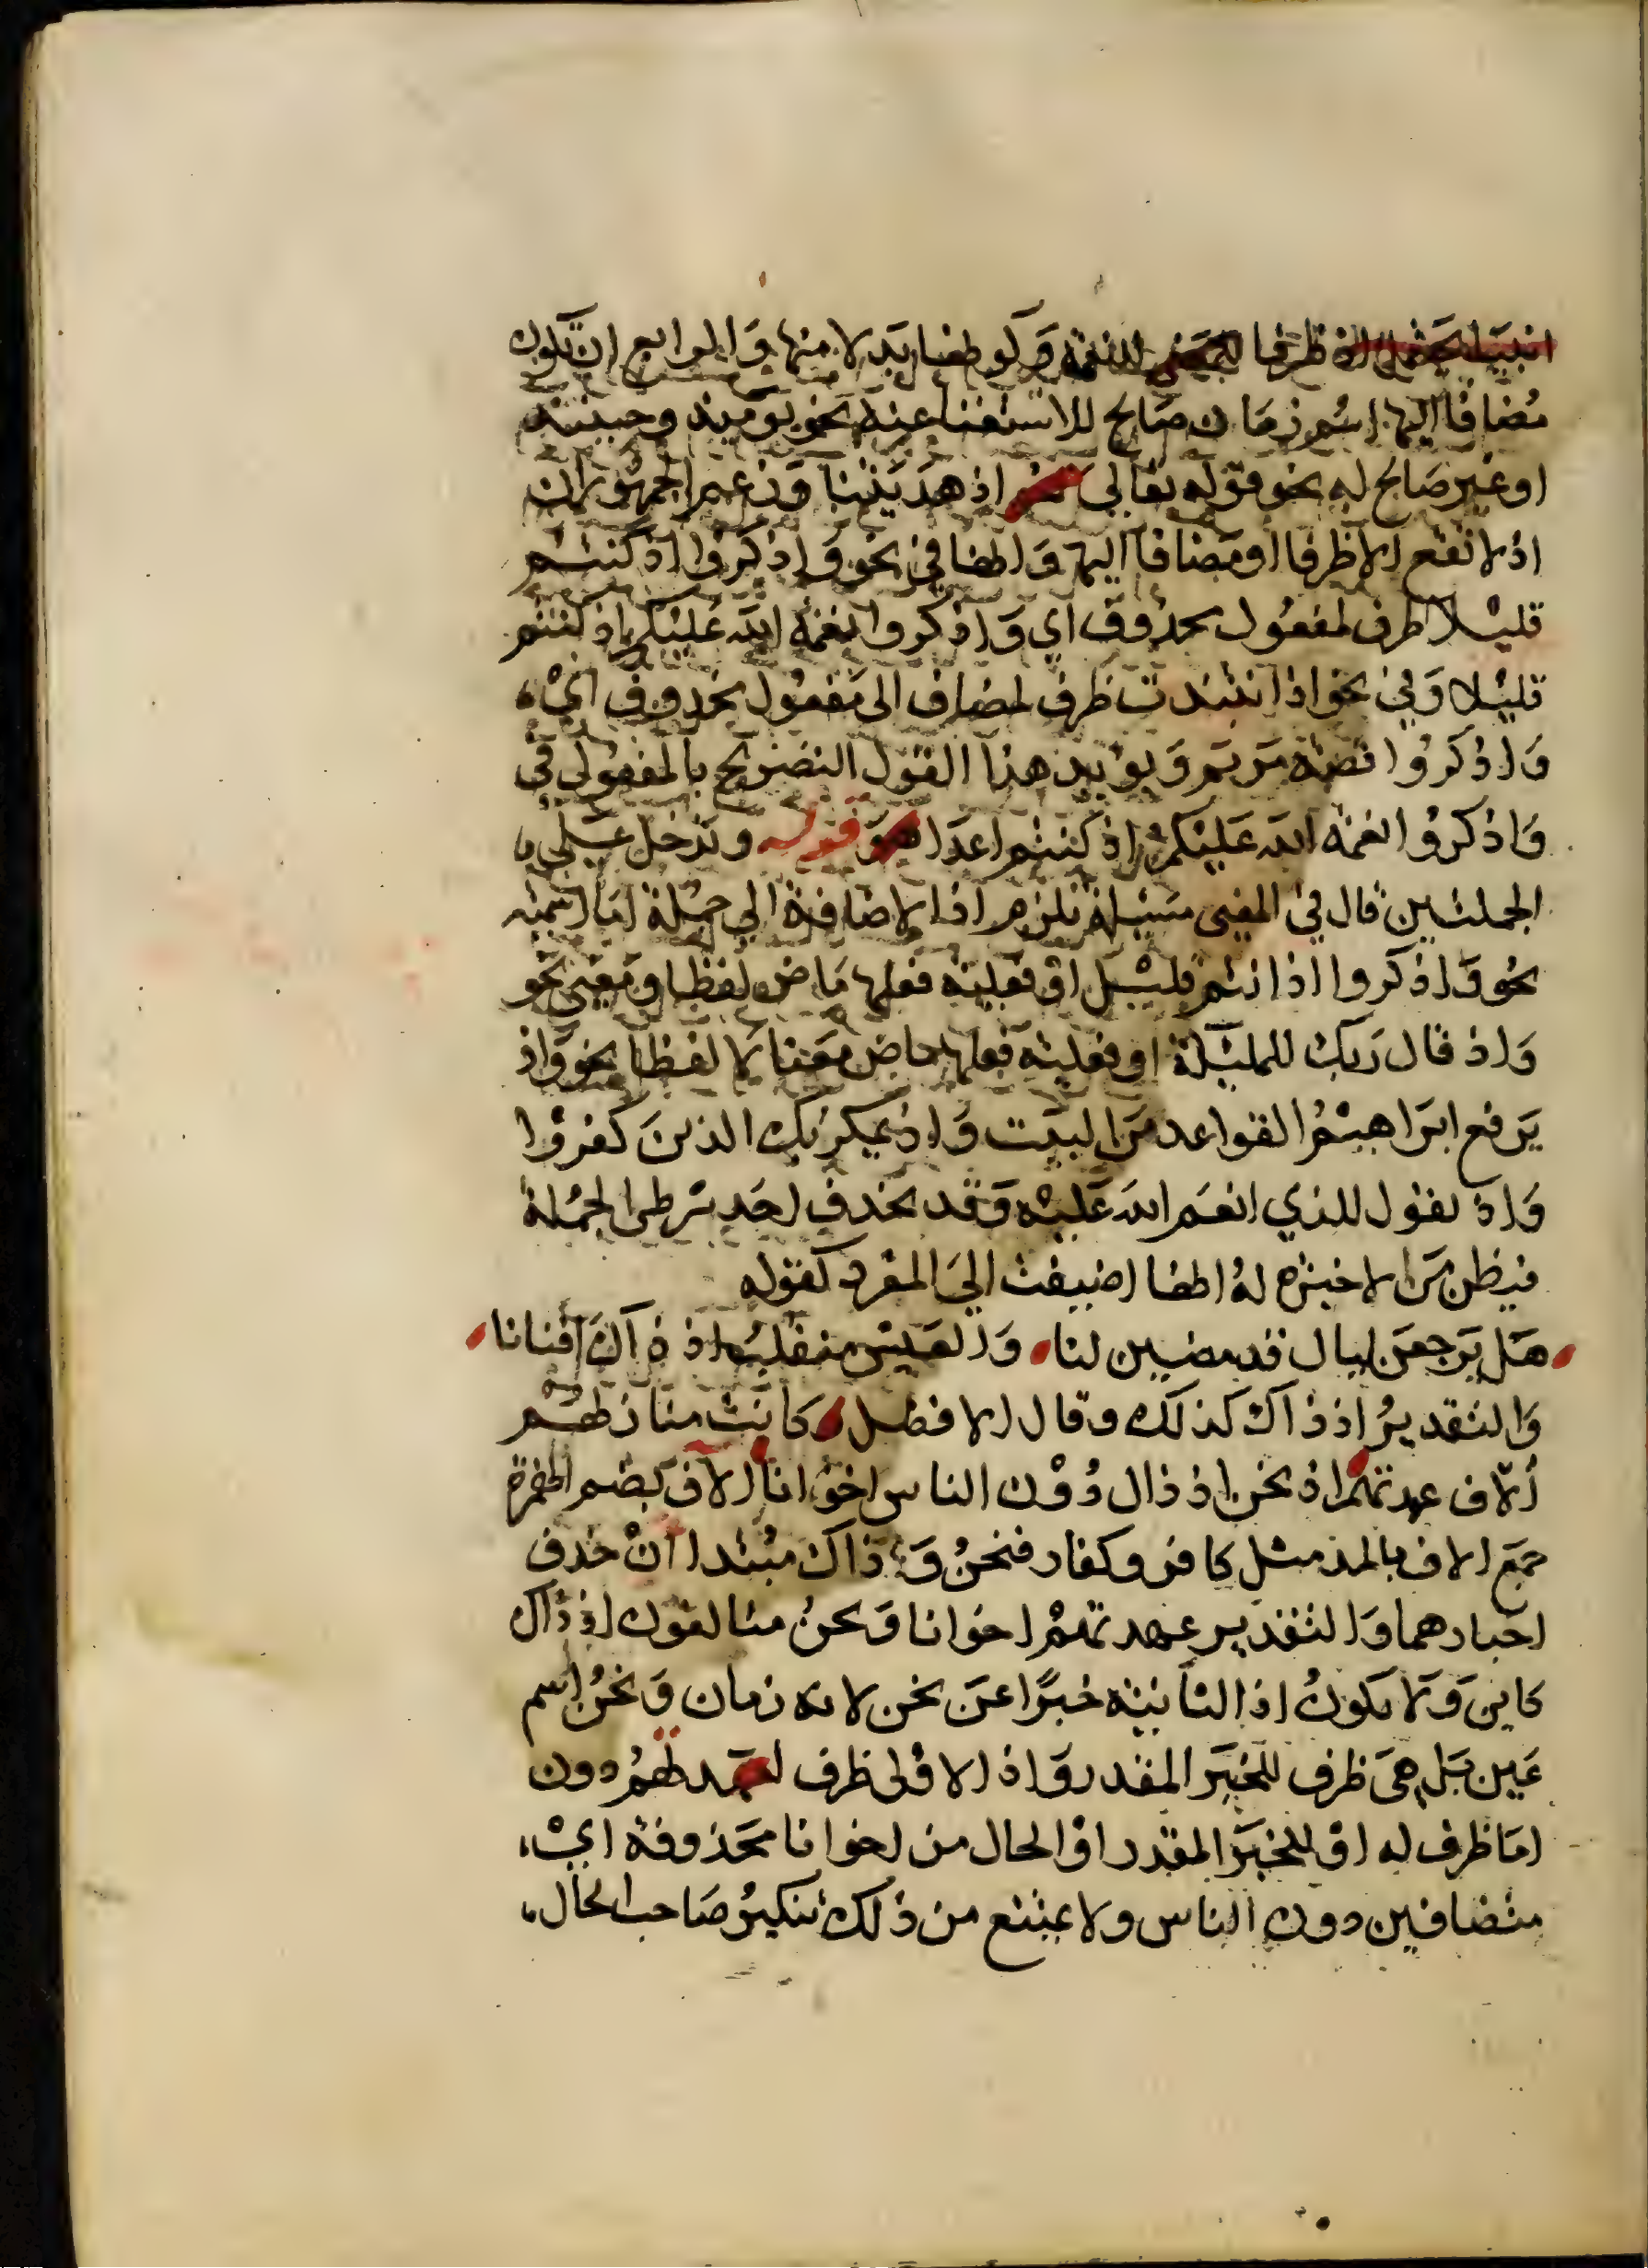 انبيا يحتمل اذ ظرفا للنعمة وكونها بدلا منها والرابع ان تكون
مضافا اليها اسم زمان صالح للاستغنا عنه نحو يوميذ وحينيذ
او غير صالح له نحو قوله تعالى اذ هديتنا وزعم الجمهور ان
اذ لا تقع الا ظرفا او مضافا اليها وانها في نحو واذكروا اذ كنتم
قليلا ظرف لمفعول محذوف اي واذكروا نعمة الله عليكم اذ كنتم
قليلا وفي نحو اذ انتبذت ظرف لمضاف الى مفعول محذوف اي
واذكروا قصة مريم ويؤيد هذا القول التصريح بالمفعول في
واذكروا نعمة الله عليكم اذ كنتم اعدا قوله وتدخل على
الجملتين قال في المغنى مسيلة تلزم اذ الاضافة الى جملة اما اسمية
نحو واذكروا اذ انتم قليل او فعلية فعلها ماض لفظا ومعنى نحو
واذ قال ربك للمليكة او فعلية فعلها ماض معنا لا لفظا نحو واذ
يرفع ابراهيم القواعد من البيت واذ يمكر بك الذين كفروا
واذ تقول للذي انعم الله عليه وقد يحذف احد شرطي الجملة
فيظن من لا خبرة له انها اضيفت الى المفرد كقوله
هل ترجعن ليال قد مضين لنا والعيش منقلب اذ ذاك افنانا
والتقدير اذ ذاك كذلك وقال الاخطل كانت منازلهم
ألاف عهدتهم اذ نحن اذ ذاك دون الناس اخوانا الاف بضم الهمزة
جمع الاف بالمد مثل كافر وكفار فنحن وذاك مبتدا ان حذف
اخبارهما والتقدير عهدتهم اخوانا ونحن متالفون اذ ذاك
كاين ولا يكون اذ الثانية خبرا عن نحن لانه زمان ونحن اسم
عين بل هي ظرف للخبر المقدر واذ الاولى ظرف لعهدتهم دون
اما ظرف له او للخبر المقدر او الحال من اخوانا محذوفة اي
متصافين دون الناس ولا يمنع من ذلك تنكير صاحب الحال